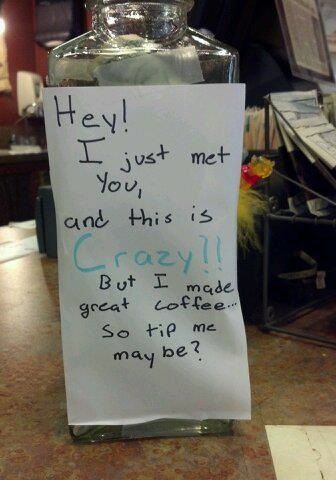 Hey!
I just met
You,
and this is
Crazy!!
But I made
great coffee...
So tip me
maybe?